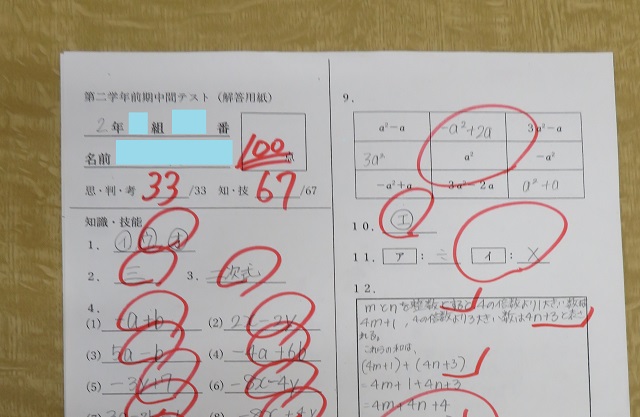 第二学年前期中間テスト（解答用紙）
2年 組 番
名前
100点
思・判・考 33/33 知・技 67/67
知識・技能
1. ㋑ ㋒ ㋔
2. 三 3. 一次式
4.
(1) -a+b (2) 2x-2y
(3) 5a-b (4) -4a+6b
(5) -3y+7 (6) -8x-4y
9.
a²-a -a²+2a 3a²-a
3a² a² -a²
-a²+a 3a²-2a a²+a
10. ㋓
11. ア : ÷ イ : ×
12.
mとnを整数とすると4の倍数より1大きい数は
4m+1, 4の倍数より3大きい数は4n+3と表さ
れる。
これらの和は、
(4m+1)+(4n+3)
=4m+1+4n+3
=4m+4n+4